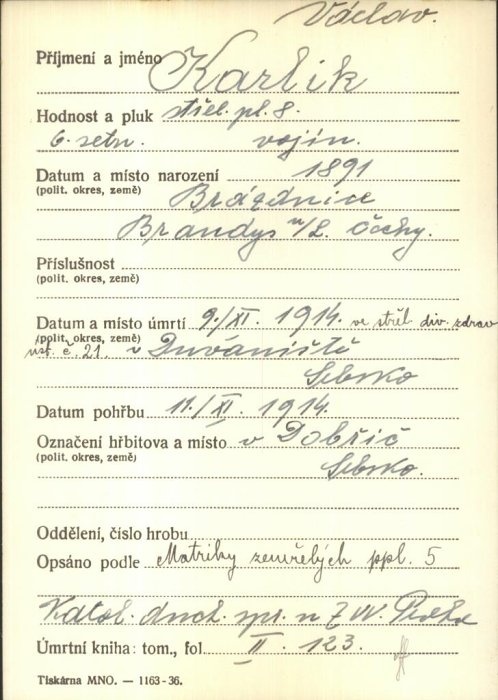 Václav.
Příjmení a jméno Karlík
Hodnost a pluk střel. pl. 8.
6. setn. vojín.
Datum a místo narození 1891
(polit. okres, země) Brázdnice
Brandýs n/L. Čechy.
Příslušnost
(polit. okres, země)
Datum a místo úmrtí 9./XI. 1914. ve střel. div. zdrav
(polit. okres, země)
úst. č. 21. v Duvaniště
Srbsko
Datum pohřbu 11./XI. 1914.
Označení hřbitova a místo v Dobřič
(polit. okres, země) Srbsko.
Oddělení, číslo hrobu
Opsáno podle Matriky zemřelých ppl. 5
Katol. duch. spr. u ZVV Praha
Úmrtní kniha: tom., fol. II. 123.
Tiskárna MNO. — 1163-36.